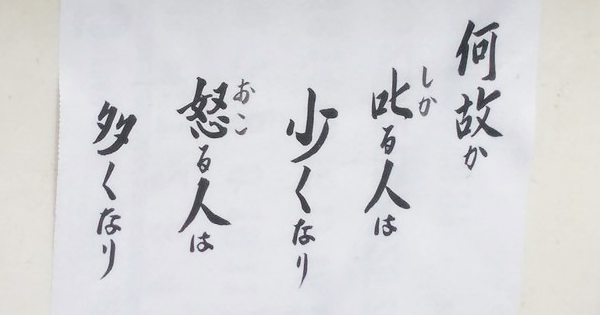 何故か
叱る人は
しか
少くなり
怒る人は
おこ
多くなり